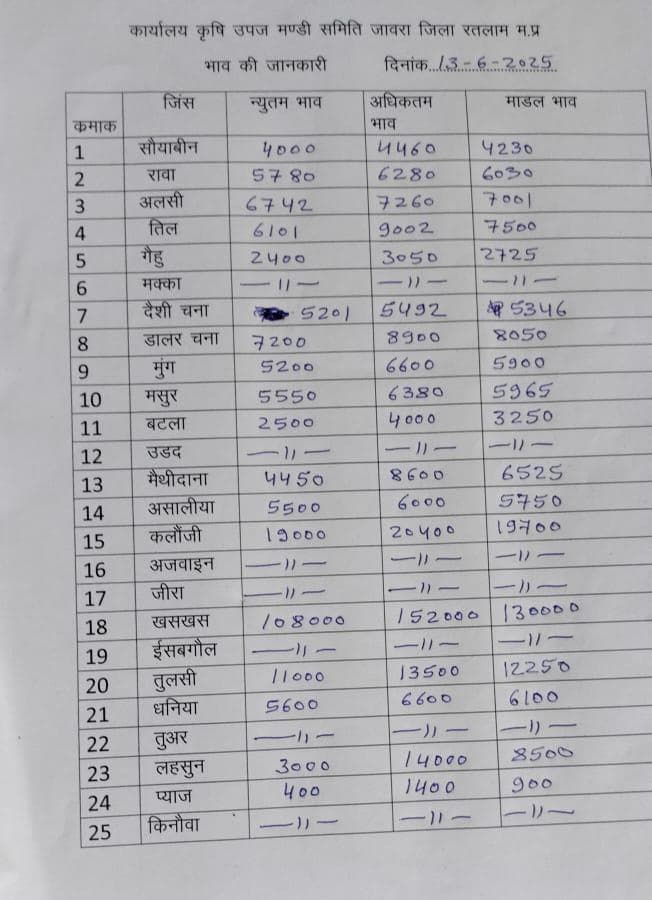 कार्यालय कृषि उपज मण्डी समिति जावरा जिला रतलाम म.प्र
भाव की जानकारी दिनांक..13-6-2025
कमाक जिंस न्युतम भाव अधिकतम भाव माडल भाव
1 सौयाबीन 4000 4460 4230
2 रावा 5780 6280 6030
3 अलसी 6742 7260 7001
4 तिल 6101 9002 7500
5 गैहु 2400 3050 2725
6 मक्का —11— —11— —11—
7 दैशी चना 5201 5492 5346
8 डालर चना 7200 8900 8050
9 मुंग 5200 6600 5900
10 मसुर 5550 6380 5965
11 बटला 2500 4000 3250
12 उडद —11— —11— —11—
13 मैथीदाना 4450 8600 6525
14 असालीया 5500 6000 5750
15 कलौंजी 19000 20400 19700
16 अजवाइन —11— —11— —11—
17 जीरा —11— —11— —11—
18 खसखस 108000 152000 130000
19 ईसबगौल —11— —11— —11—
20 तुलसी 11000 13500 12250
21 धनिया 5600 6600 6100
22 तुअर —11— —11— —11—
23 लहसुन 3000 14000 8500
24 प्याज 400 1400 900
25 किनौवा —11— —11— —11—